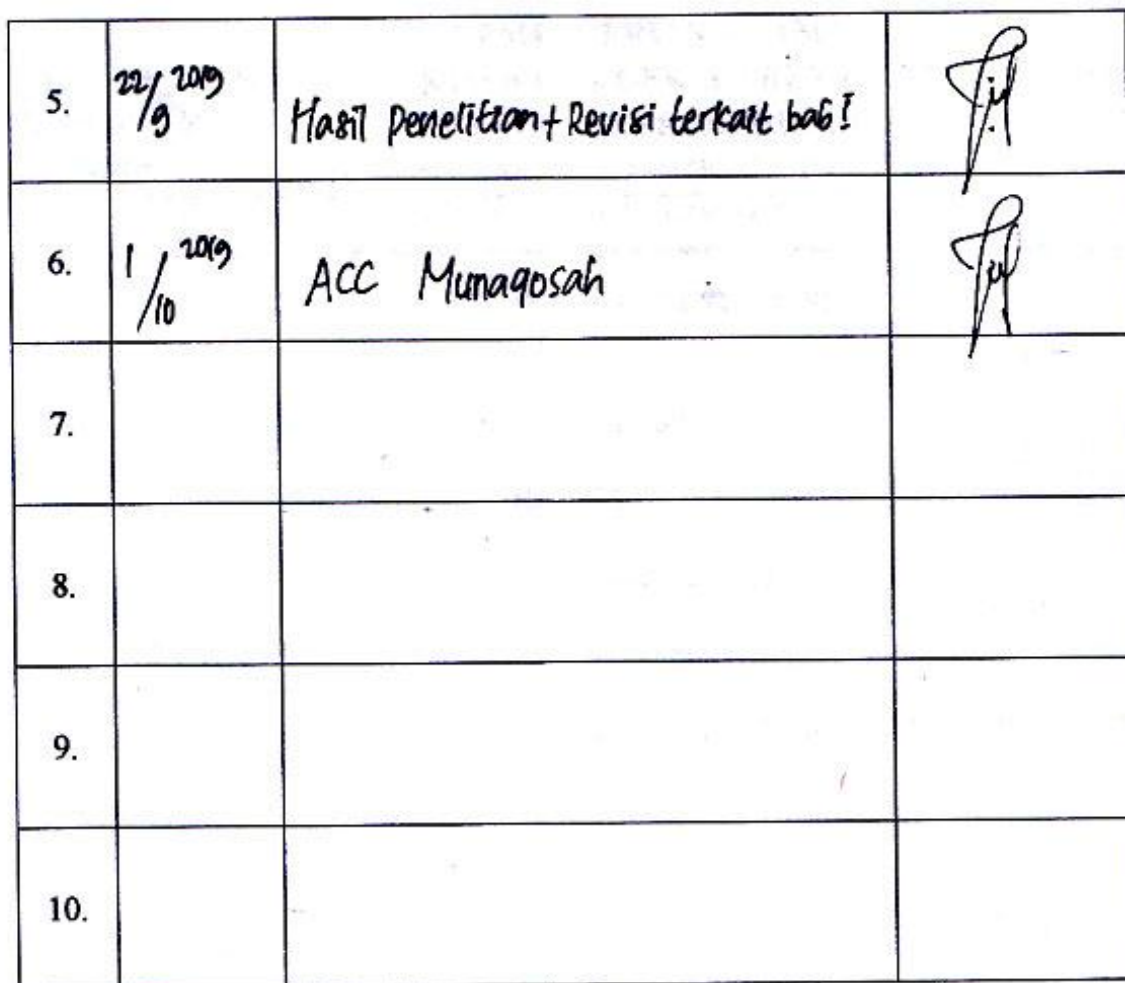 5. 22/9 2019 Hasil Penelitian + Revisi terkait bab I
6. 1/10 2019 ACC Munaqosah
7.
8.
9.
10.